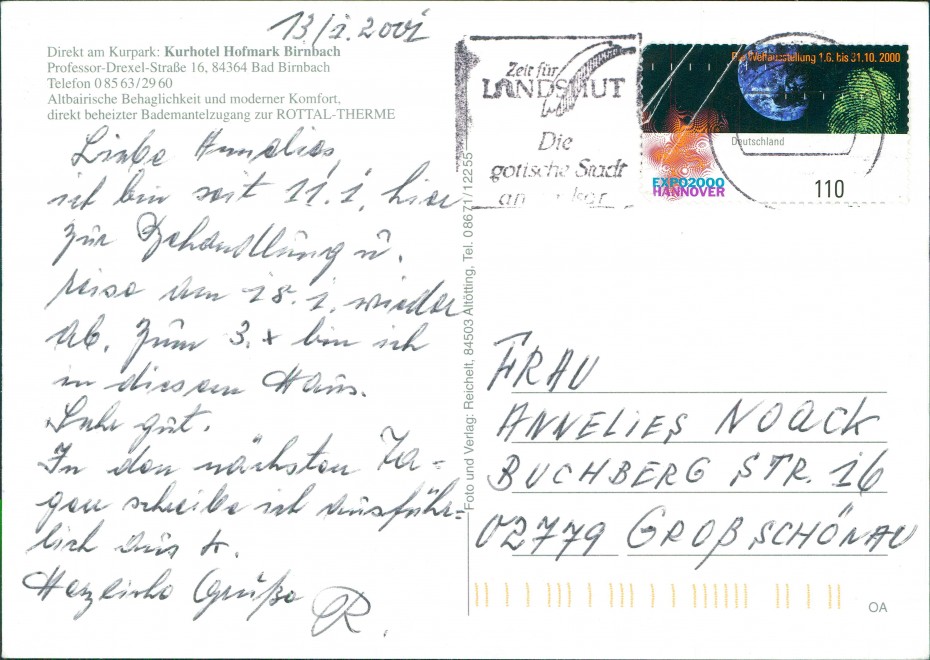 13/1.2001
Direkt am Kurpark: Kurhotel Hofmark Birnbach
Professor-Drexel-Straße 16, 84364 Bad Birnbach
Telefon 0 85 63/29 60
Altbairische Behaglichkeit und moderner Komfort,
direkt beheizter Bademantelzugang zur ROTTAL-THERME
Liebe Annelies,
ich bin seit 11.1. hier
zur Behandlung u.
reise am 18.1. wieder
ab. Zum 3. x bin ich
in diesem Haus.
Sehr gut.
In den nächsten Ta=
gen schreibe ich ausführ=
lich aus
Herzliche Grüße
R.
Foto und Verlag: Reichelt, 84503 Altötting, Tel. 08671/12255
Zeit für
LANDSHUT
Die
gotische Stadt
an
Die Weltausstellung 1.6. bis 31.10. 2000
Deutschland
EXPO2000
HANNOVER
110
FRAU
ANNELIES NOACK
BUCHBERG STR. 16
02779 GROßSCHÖNAU
OA